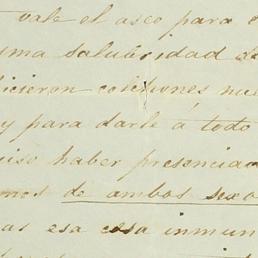 vale el aseo para
una salubridad de
icieron colchones nue
y para darle á todo
uiso haber presencia
mos de ambos sexo
as esa cosa inmun